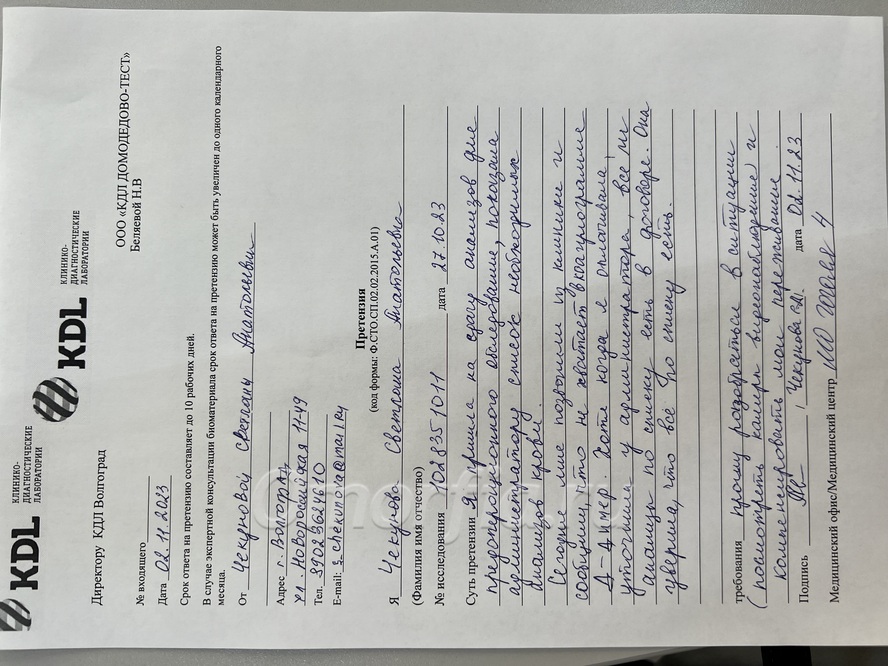 KDL КЛИНИКО-
ДИАГНОСТИЧЕСКИЕ
ЛАБОРАТОРИИ
KDL КЛИНИКО-
ДИАГНОСТИЧЕСКИЕ
ЛАБОРАТОРИИ
Директору КДЛ Волгоград
ООО «КДЛ ДОМОДЕДОВО-ТЕСТ»
Беляевой Н.В
№ входящего
Дата 02.11.2023
Срок ответа на претензию составляет до 10 рабочих дней.
В случае экспертной консультации биоматериала срок ответа на претензию может быть увеличен до одного календарного
месяца.
От Чекуновой Светланы Анатольевны
Адрес г. Волгоград,
ул. Новороссийская 11-49
Тел. 89023624610
E-mail: s_chekunova@mail.ru
Претензия
(код формы: Ф.СТО.СП.02.02.2015.А.01)
Я Чекунова Светлана Анатольевна
(Фамилия имя отчество)
№ исследования 1028351011 дата 27.10.23
Суть претензии Я пришла на сдачу анализов для
предоперационного обследования, показала
администратору список необходимых
анализов крови.
Сегодня мне позвонили из клиники и
сообщили, что не хватает в коагулограмме
Д-димер. Хотя когда я оплачивала,
уточнила у администратора, все ли
анализы по списку есть в договоре. Она
уверила, что всё по списку есть.
требования прошу разобраться в ситуации
(посмотреть камеры видеонаблюдение) и
компенсировать мои переживание.
Подпись / Чекунова С.А. дата 02.11.23
Медицинский офис/Медицинский центр